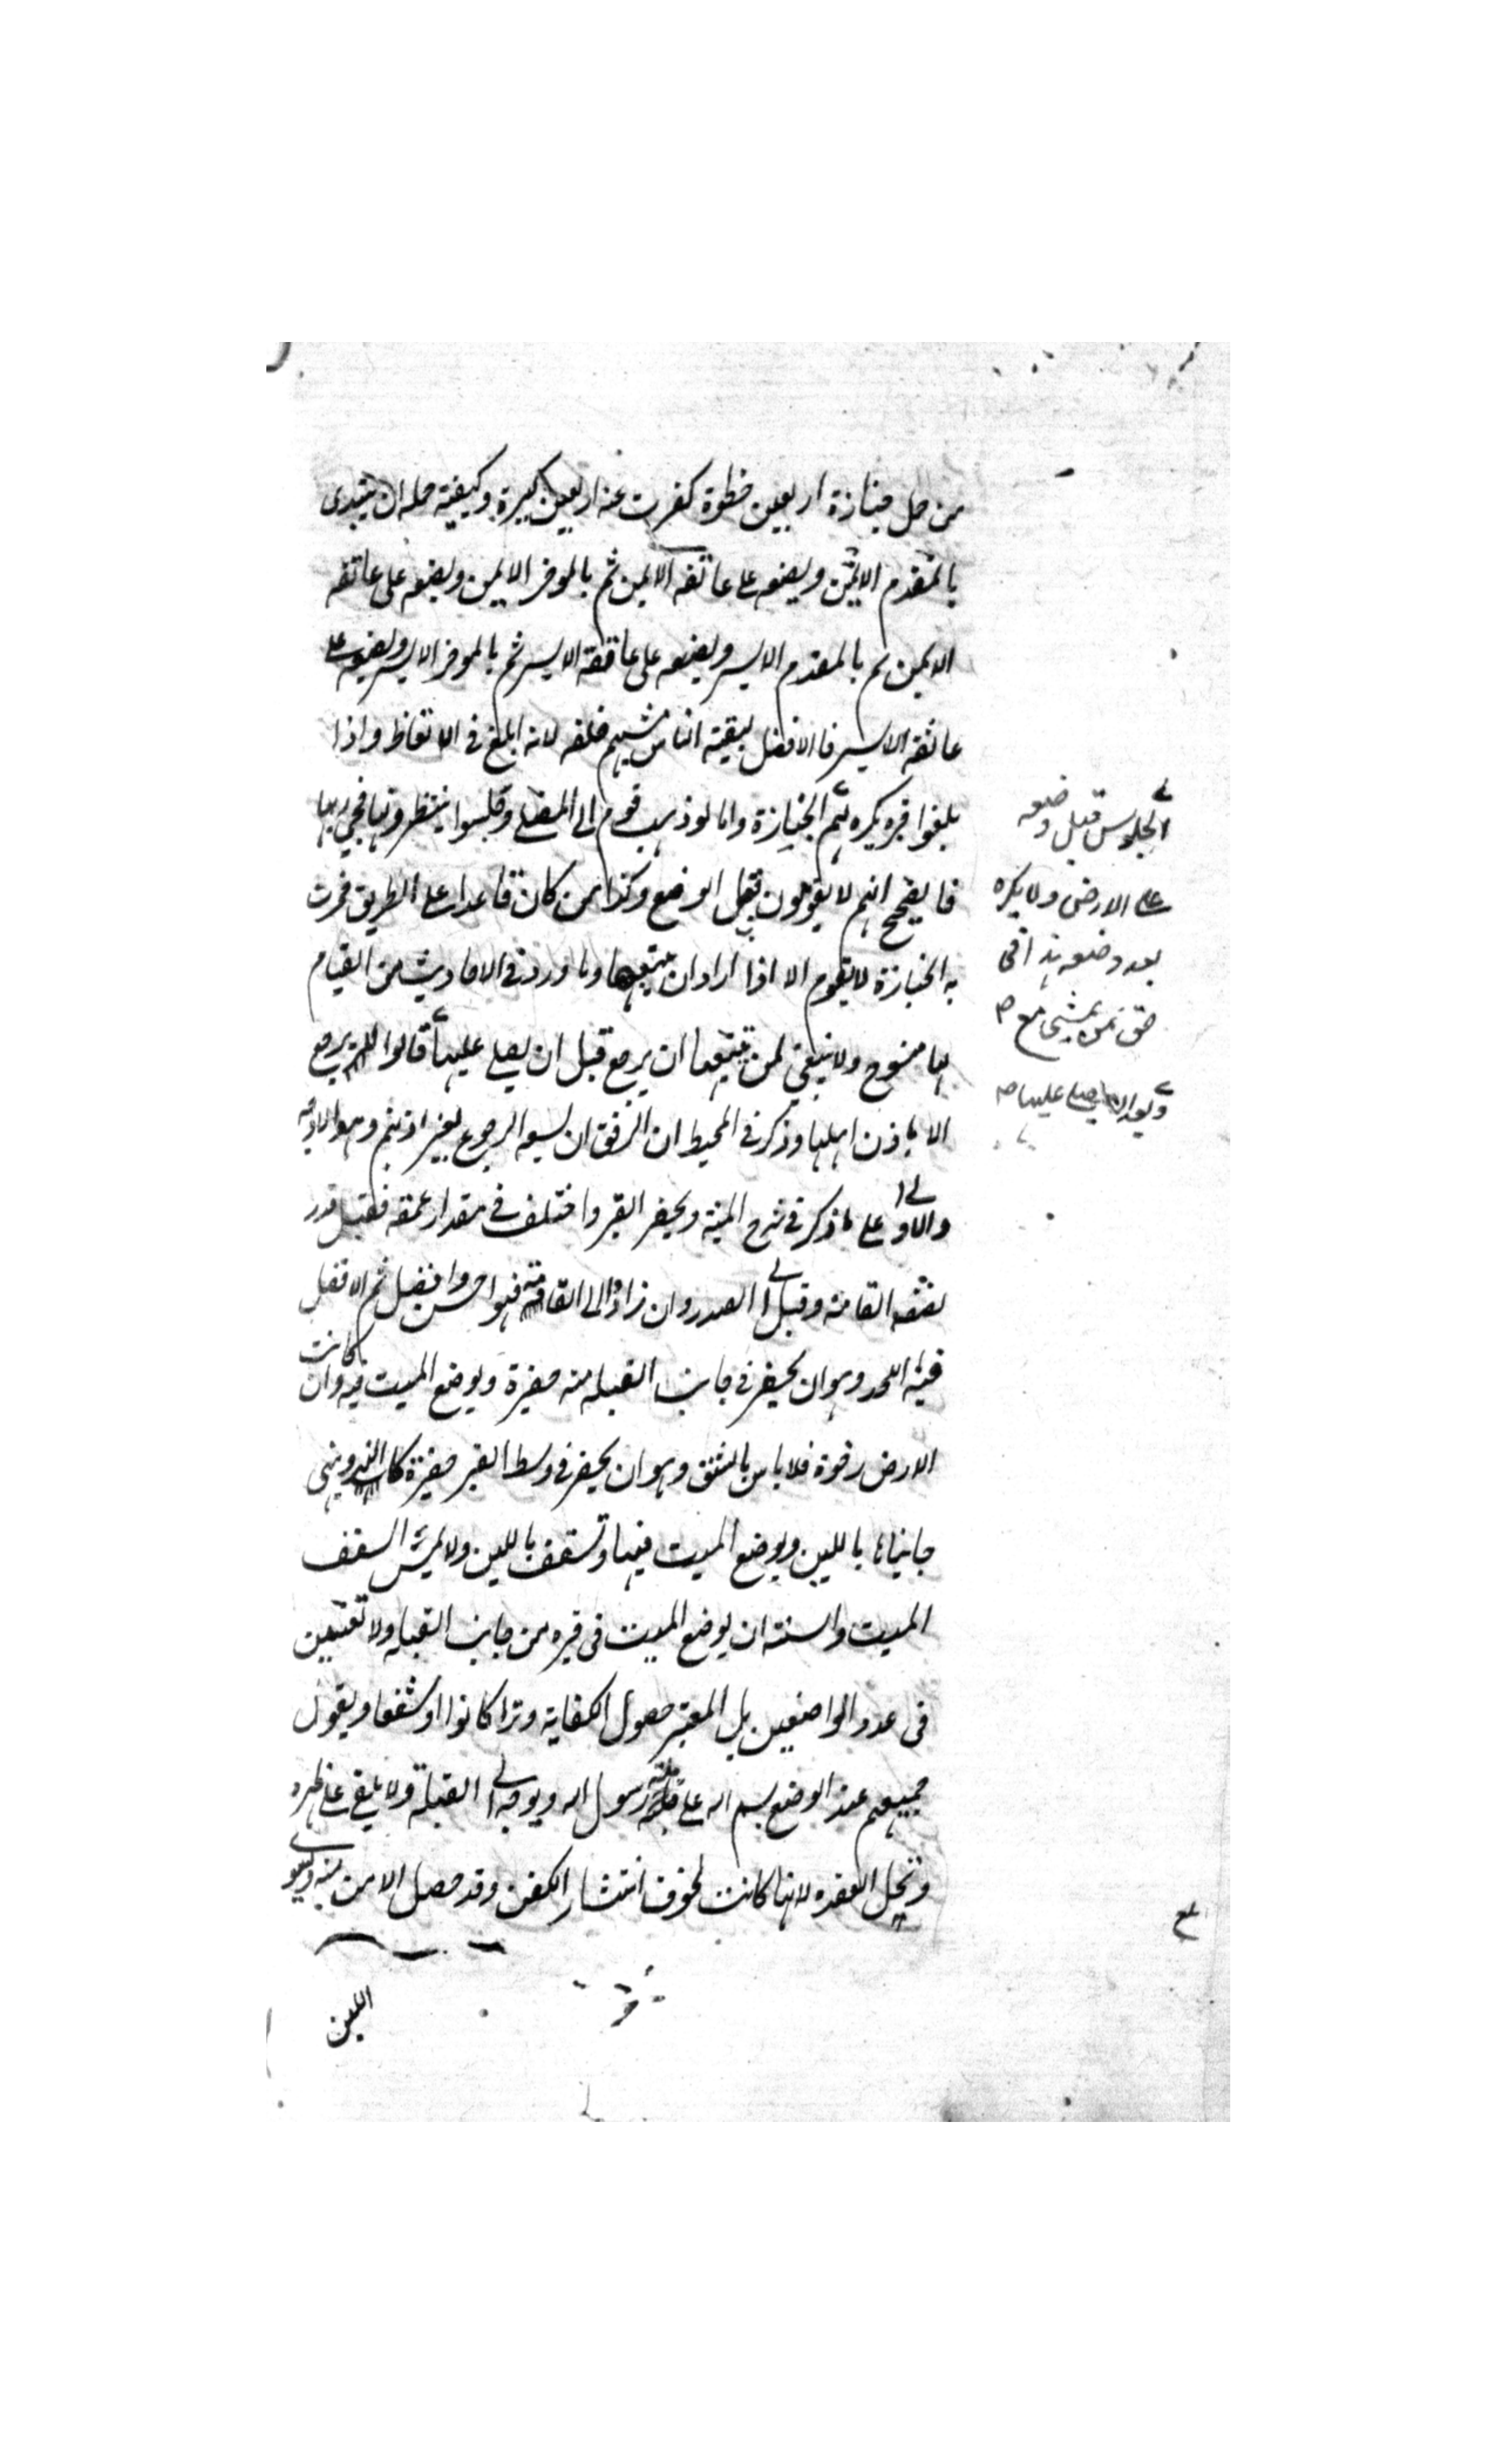 من حمل جنازة اربعين خطوة كفرت عنه اربعين كبيرة وكيفية حمله ان يبتدى
بالمقدم الايمن ويضعه على عاتقه الايمن ثم بالموخر الايمن ويضعه على عاتقه
الايمن ثم بالمقدم الايسر ويضعه على عاتقه الايسر ثم بالموخر الايسر ويضعه على
عاتقه الايسر فالافضل لبقية الناس مشيهم خلفه لانه ابلغ في الاتعاظ واذا
بلغوا قبره يكره لهم الجنازة واما لو ذهب قوم الى المصلى وجلسوا ينتظرونها فجئ بها
فالصحيح انهم لا يقومون قبل الوضع وكذا من كان قاعدا على الطريق فمرت
به الجنازة لا يقوم الا اذا اراد ان يتبعها وما ورد في الاحاديث من القيام
لها منسوخ ولا ينبغي لمن يتبعها ان يرجع قبل ان يصلي عليها قالوا لا يرجع
الا باذن اهلها وذكر في المحيط ان الرفق ان لسعه الرجوع بغير اذنهم وهو الاوجه
والاولى على ما ذكر في شرح المنية ويحفر القبر واختلف في مقدار عمقه فقيل قدر
نصف القامة وقيل الى الصدر وان زادوا الى القامة فهو احسن وافضل ثم الافضل
فيه اللحد وهو ان يحفر في جانب القبلة منه حفيرة ويوضع الميت فيه وان كانت
الارض رخوة فلا باس بالشق وهو ان يحفر في وسط القبر حفيرة كالنهر ويبنى
جانباها باللبن ويوضع الميت فيها وتسقف باللبن ولا يمس السقف
الميت والسنة ان يوضع الميت في قبره من جانب القبلة ولا تعيين
في عدد الواضعين بل المعتبر حصول الكفاية وترا كانوا او شفعا ويقول
جميعهم عند الوضع بسم الله على ملة رسول الله ويوجه الى القبلة ولا يلقى على ظهره
وتحل العقده لانها كانت لخوف انتشار الكفن وقد حصل الامن منه ويسوى
اللبن
الجلوس قبل وضعه
على الارض ولا يكره
بعد وضعه هذا في
حق من يمشي مع
وبعد ما صلى عليها